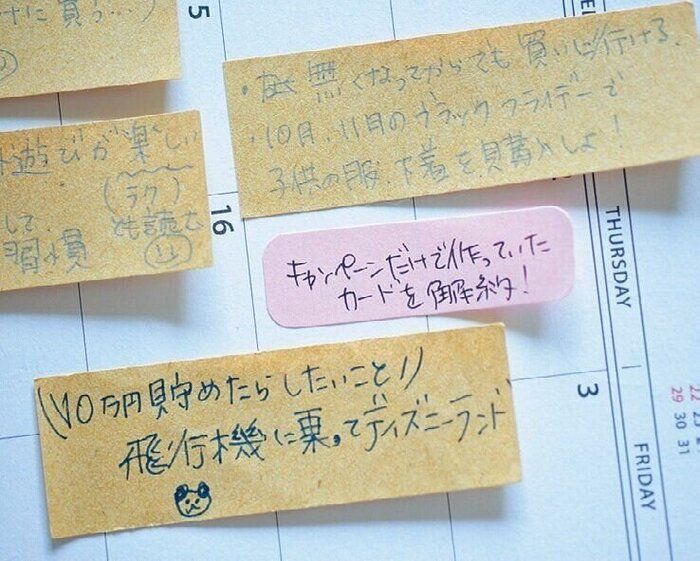 に買う…)
5
無くなってからでも買いに行ける。
・10月、11月のブラックフライデーで
子供の服、下着を購入しよ!
遊びが楽しい
(ラク)
して、
習慣 も読む
16
THURSDAY
キャンペーンだけで作っていた
カードを解約!
\10万円貯めたらしたいこと//
飛行機に乗ってディズニーランド
3
FRIDAY
22 23
29 30 31